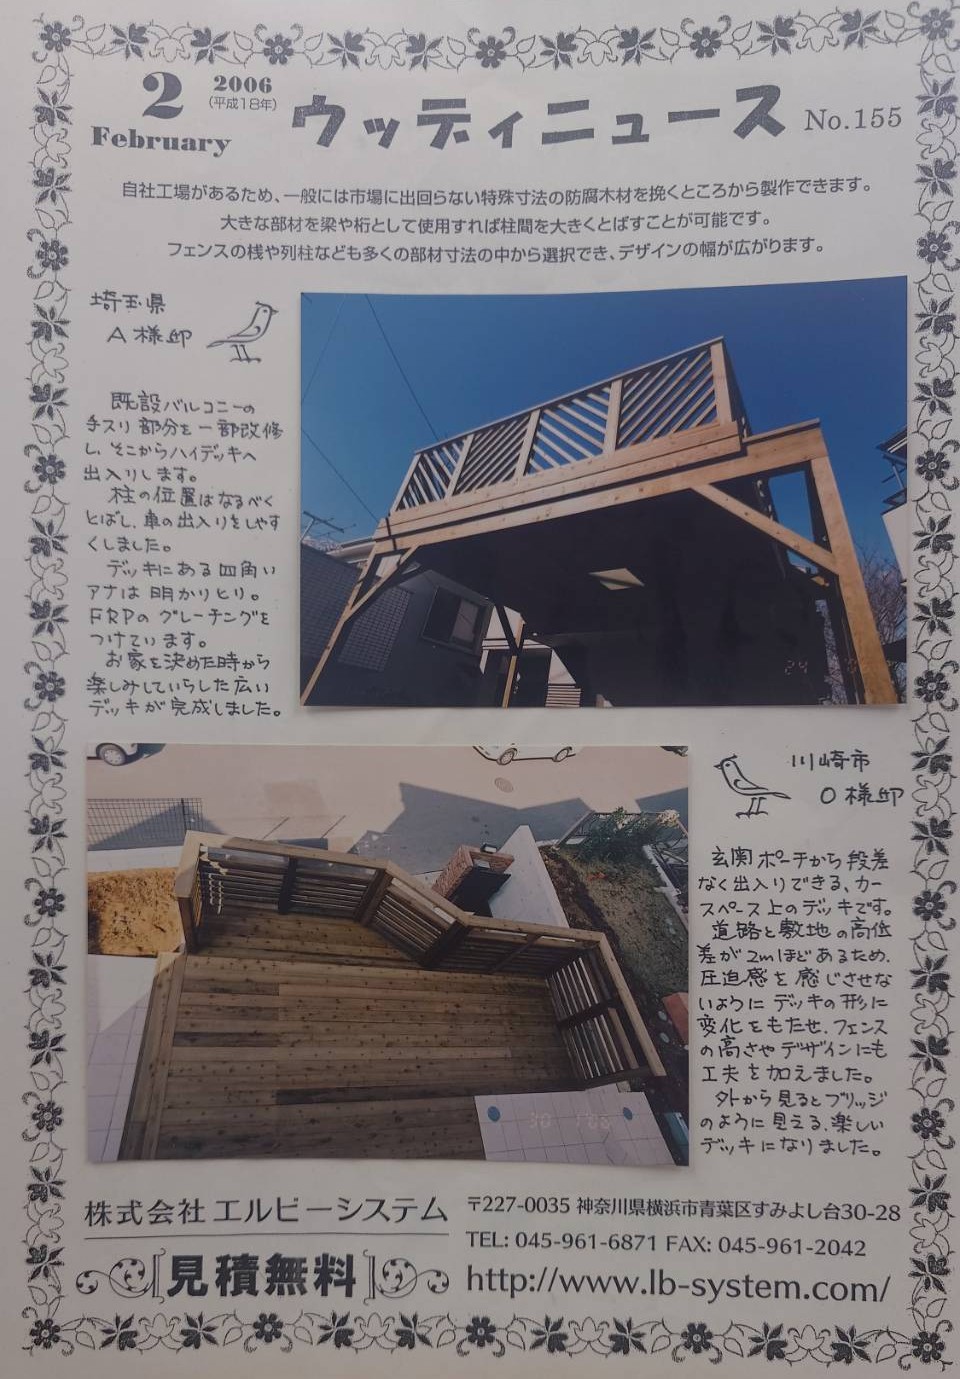 2
February
2006
(平成18年)
ウッディニュース
No.155
自社工場があるため、一般には市場に出回らない特殊寸法の防腐木材を挽くところから製作できます。
大きな部材を梁や桁として使用すれば柱間を大きくとばすことが可能です。
フェンスの桟や列柱なども多くの部材寸法の中から選択でき、デザインの幅が広がります。
埼玉県
A様邸
既設バルコニーの
手スリ部分を一部改修
し、そこからハイデッキへ
出入りします。
柱の位置はなるべく
とばし、車の出入りをしやす
くしました。
デッキにある四角い
アナは明かりとり。
FRPのグレーチングを
つけています。
お家を決めた時から
楽しみしていらした広い
デッキが完成しました。
川崎市
O様邸
玄関ポーチから段差
なく出入りできる、カー
スペース上のデッキです。
道路と敷地の高低
差が2mほどあるため、
圧迫感を感じさせな
いようにデッキの形に
変化をもたせ、フェンス
の高さやデザインにも
工夫を加えました。
外から見るとブリッジ
のように見える、楽しい
デッキになりました。
株式会社エルビーシステム
見積無料
〒227-0035 神奈川県横浜市青葉区すみよし台30-28
TEL: 045-961-6871 FAX: 045-961-2042
http://www.lb-system.com/